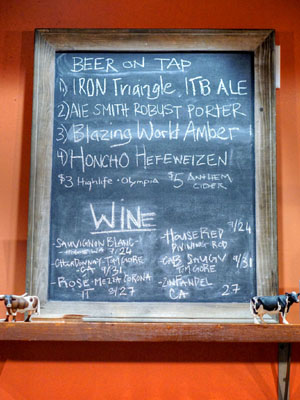 BEER ON TAP
1) IRON Triangle, ITB ALE
2) ALE SMITH ROBUST PORTER
3) Blazing World Amber
4) HONCHO HEFEWEIZEN
$3 Highlife · Olympia $5 ANTHEM CIDER
WINE
- SAUVIGNON BLANC -
WA 7/24
- CHARDONNAY - TOM GORE
CA 9/31
- ROSE - MEZZA CORONA
IT 8/27
- HOUSE RED 7/24
DIVINING ROD
- CAB SAUGV 9/31
TOM GORE
- ZINFANDEL
CA 27